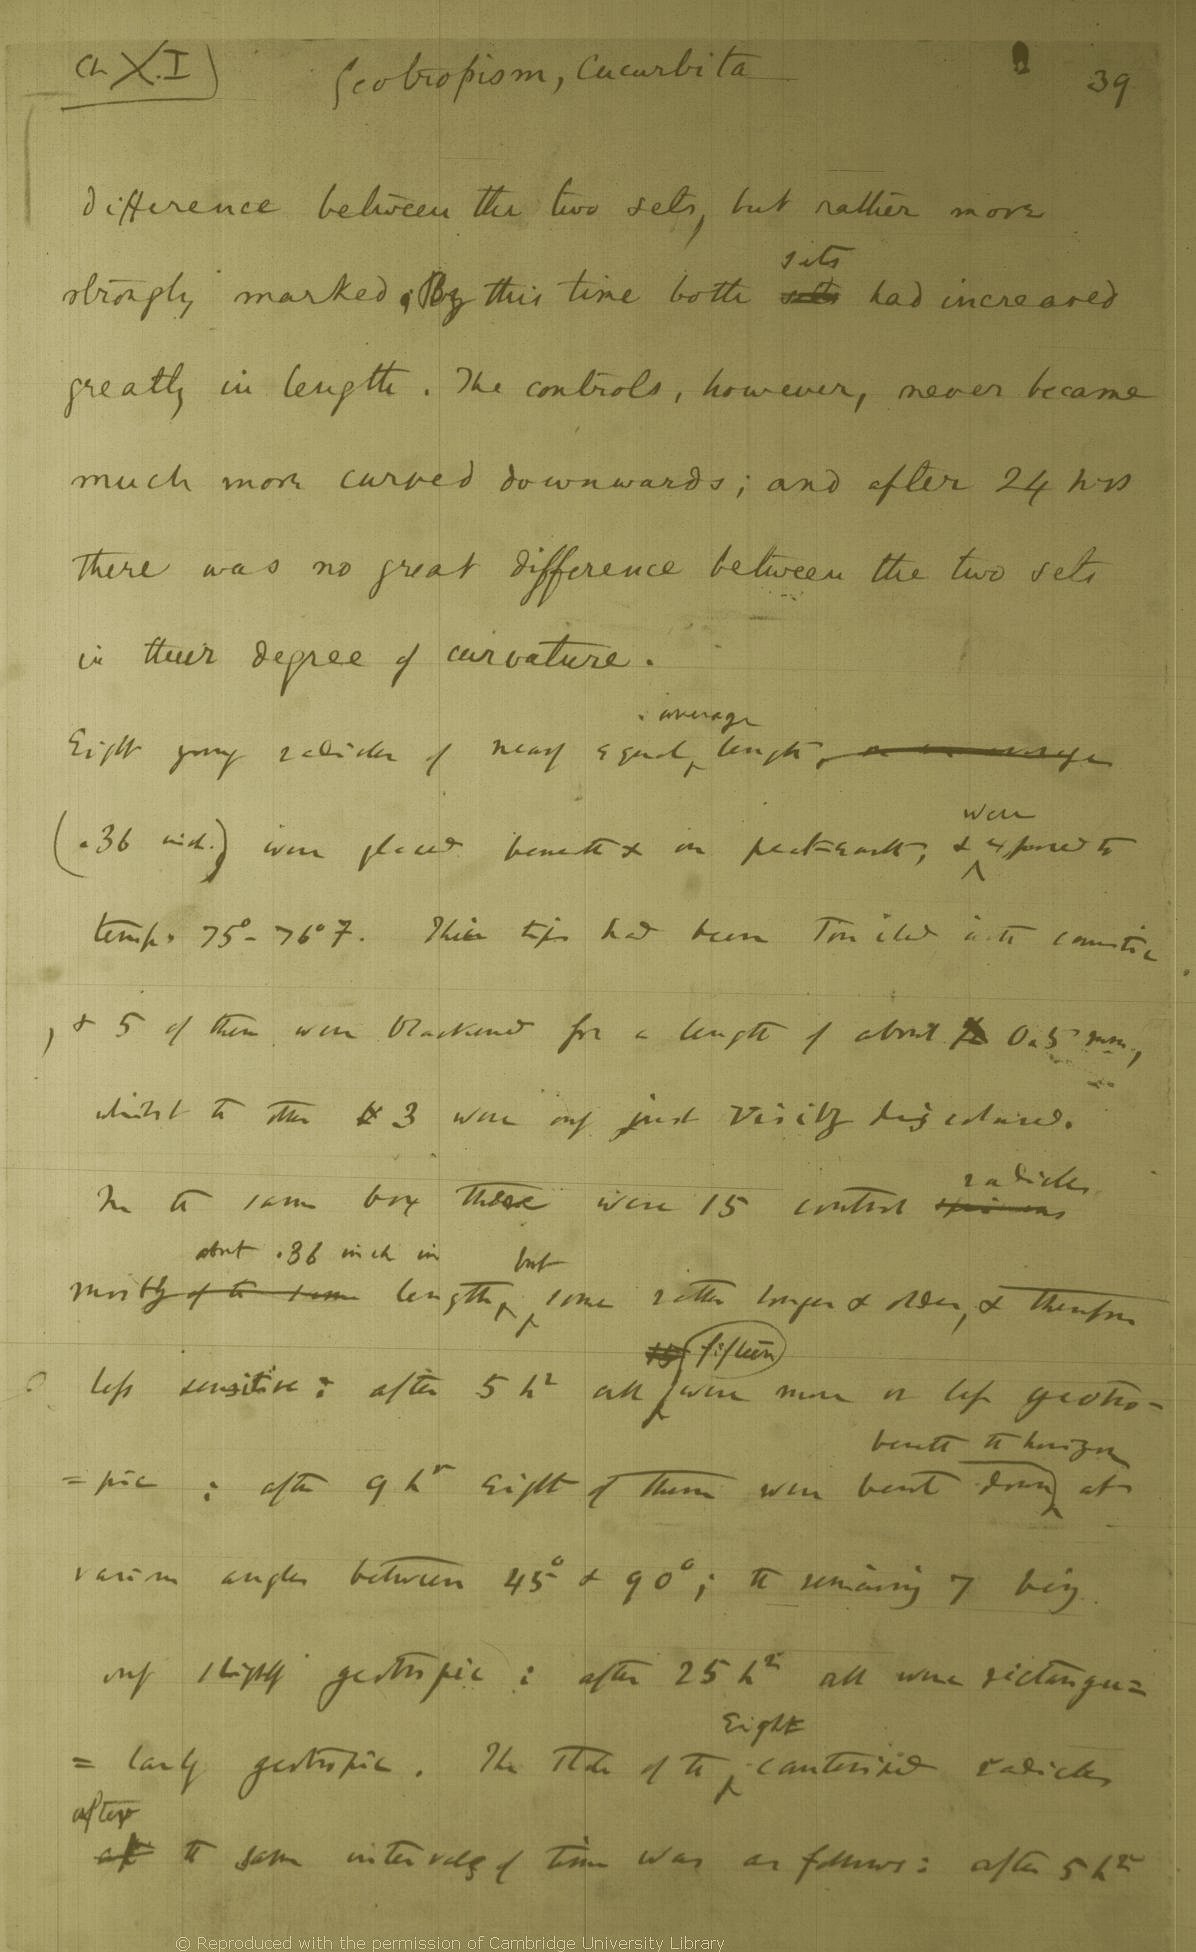 Ch XI) Geotropism, Cucurbita 39
difference between the two sets, but rather more
sets
strongly marked. By this time both sets had increased
greatly in length. The controls, however, never became
much more curved downwards; and after 24 hrs
there was no great difference between the two sets
in their degree of curvature.
average
Eight young radicles of nearly equal length, or on average
were
(.36 inch.) were placed beneath & in peat-earth, & exposed to
temp. 75°- 76° F. Their tips had been touched with caustic
, & 5 of them were blackened for a length of about 0.5 mm,
whilst the other 3 were only just visibly discoloured.
radicles
In the same box there were 15 control specimens
about .36 inch in but
mostly of the same length, some rather longer & older, & therefore
15 (fifteen)
less sensitive: after 5 hr all were more or less geotro-
beneath the horizon
=pic : after 9 hr eight of them were bent down at
various angles between 45° & 90°; the remaining 7 being
only slightly geotropic : after 25 hr all were rectangu=
Eight
= larly geotropic. The state of the cauterised radicles
after
at the same intervals of time was as follows: after 5 hr
© Reproduced with the permission of Cambridge University Library